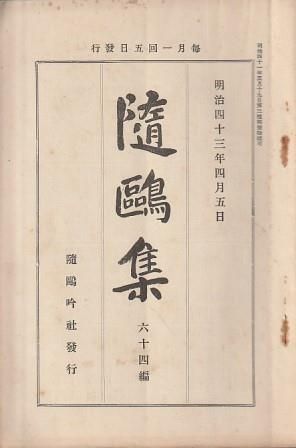 行發日五回一月每
明治四十三年四月五日
隨鷗集
六十四編
隨鷗吟社發行